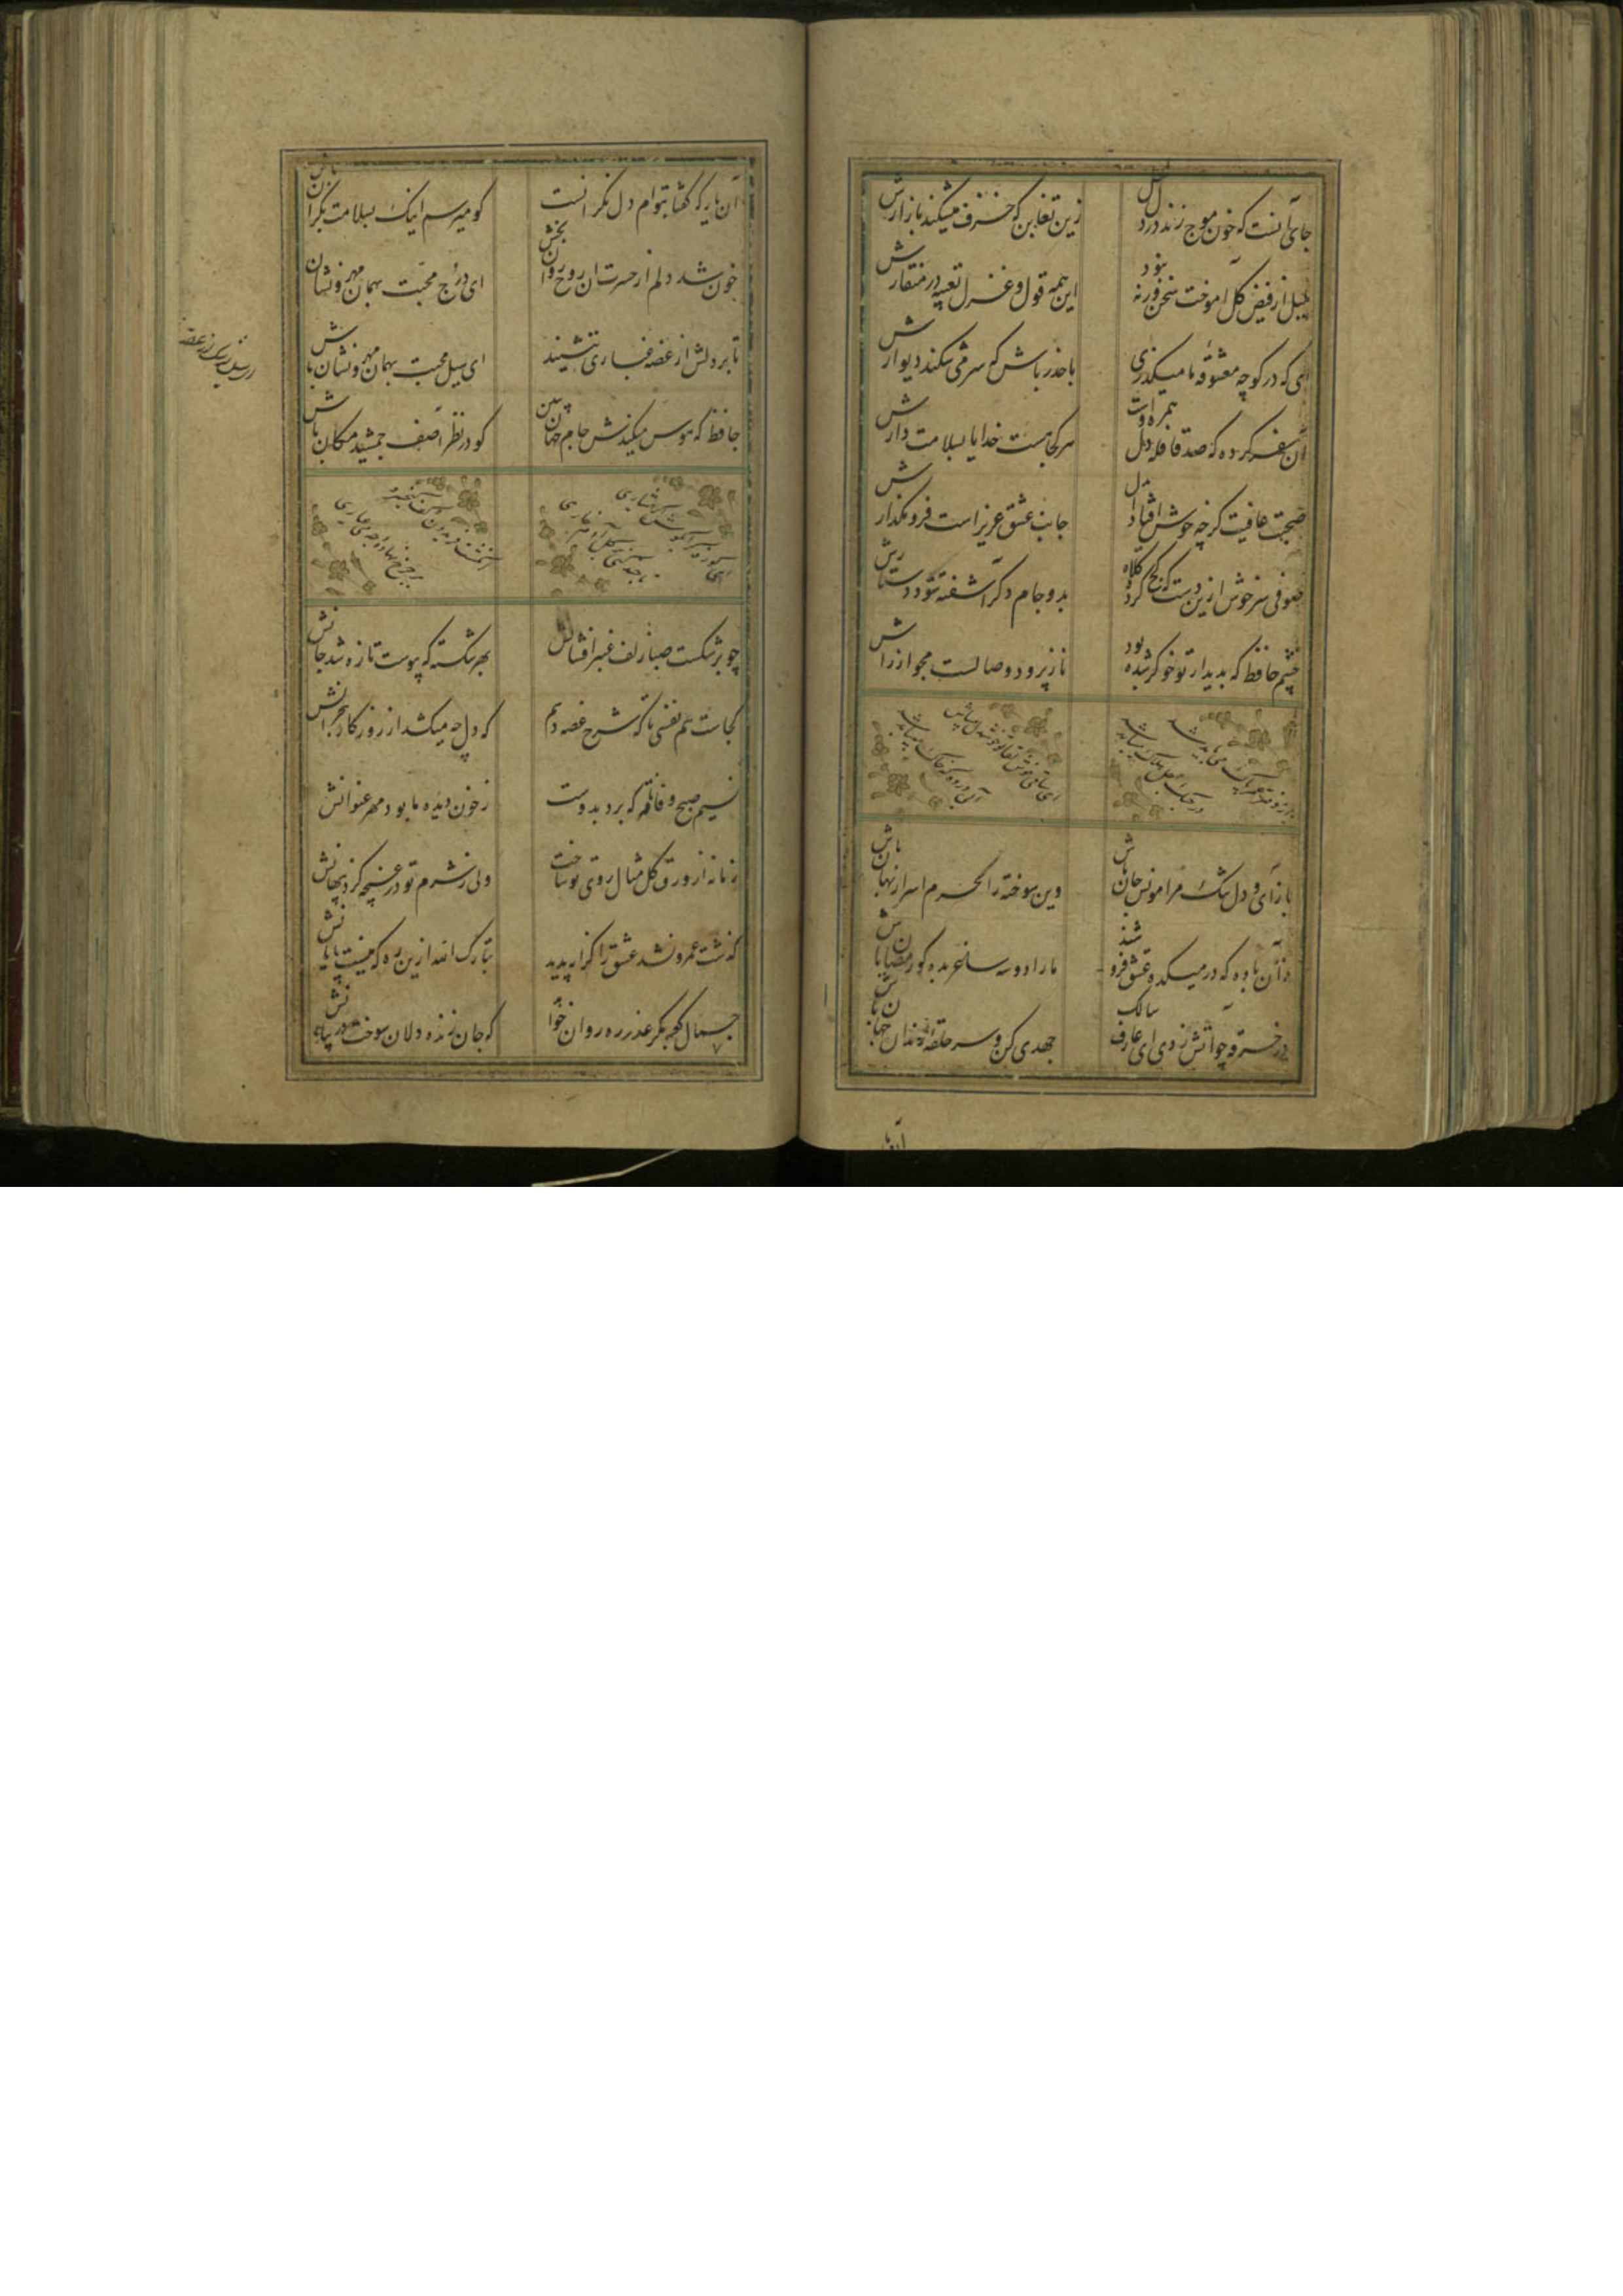 جای آنست که خون موج زند در دل لعل
زین تغابن که خزف میشکند بازارش
بلبل از فیض گل آموخت سخن ورنه نبود
این همه قول و غزل تعبیه در منقارش
ای که در کوچه معشوقه ما میگذری
باحذر باش که سر می شکند دیوارش
آن سفر کرده که صد قافله دل همره اوست
هر کجا هست خدایا بسلامت دارش
صحبت عافیتت گرچه خوش افتاد ای دل
جانب عشق عزیز است فرو مگذارش
صوفی سرخوش ازین دست که کج کرد کلاه
بدو جام دگر آشفته شود دستارش
چشم حافظ که بدیدار تو خوکر شده بود
ناز پرورد وصالست مجو آزارش
باز آی و دل تنگ مرا مونس جان باش
وین سوخته را محرم اسرار نهان باش
زان باده که در میکده عشق فروشند
ما را دو سه ساغر بده و گو رمضان باش
در خرقه چو آتش زدی ای عارف سالک
جهدی کن و سر حلقه رندان جهان باش
آن یار
آن یار که گفتا بتوام دل نگرانست
گو میرسم اینک بسلامت نگران باش
خون شد دلم از حسرت آن روح روان بخش
ای درج محبت بهمان مهر و نشان
تا بر دلش از غصه غباری ننشیند
ای سیل محبت بهمان مهر و نشان باش
حافظ که هوس میکندش جام جهان بین
گو در نظر آصف جمشید مکان باش
چو برشکست صبا زلف عنبر افشانش
بهر شکسته که پیوست تازه شد جانش
کجاست هم نفسی تا که شرح غصه دهم
که دل چه میکشد از روزگار هجرانش
نسیم صبح وفانامه که برد بدوست
ز خون دیده ما بود مهر عنوانش
زمانه از ورق گل مثال روی تو ساخت
ولی ز شرم تو در غنچه کرد پنهانش
گذشت عمر و نشد عشق را کران پدید
تبارک الله ازین ره که نیست پایانش
جمال کعبه مگر عذر ره روان خواهد
که جان زنده دلان سوخت در بیابانش